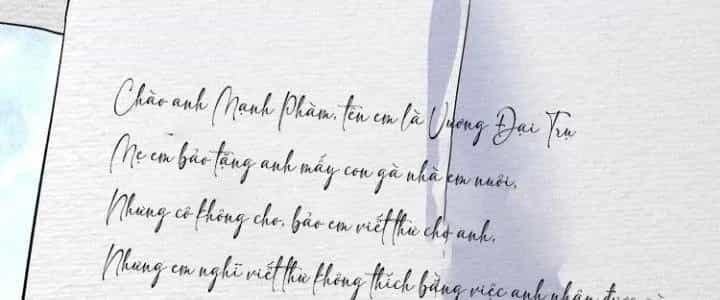 Chào anh Mạnh Phàm, tên em là Vương Đại Trụ
Mẹ em bảo tặng anh mấy con gà nhà em nuôi,
Nhưng cô không cho, bảo em viết thư cho anh,
Nhưng em nghĩ viết thư không thích bằng việc anh nhận được